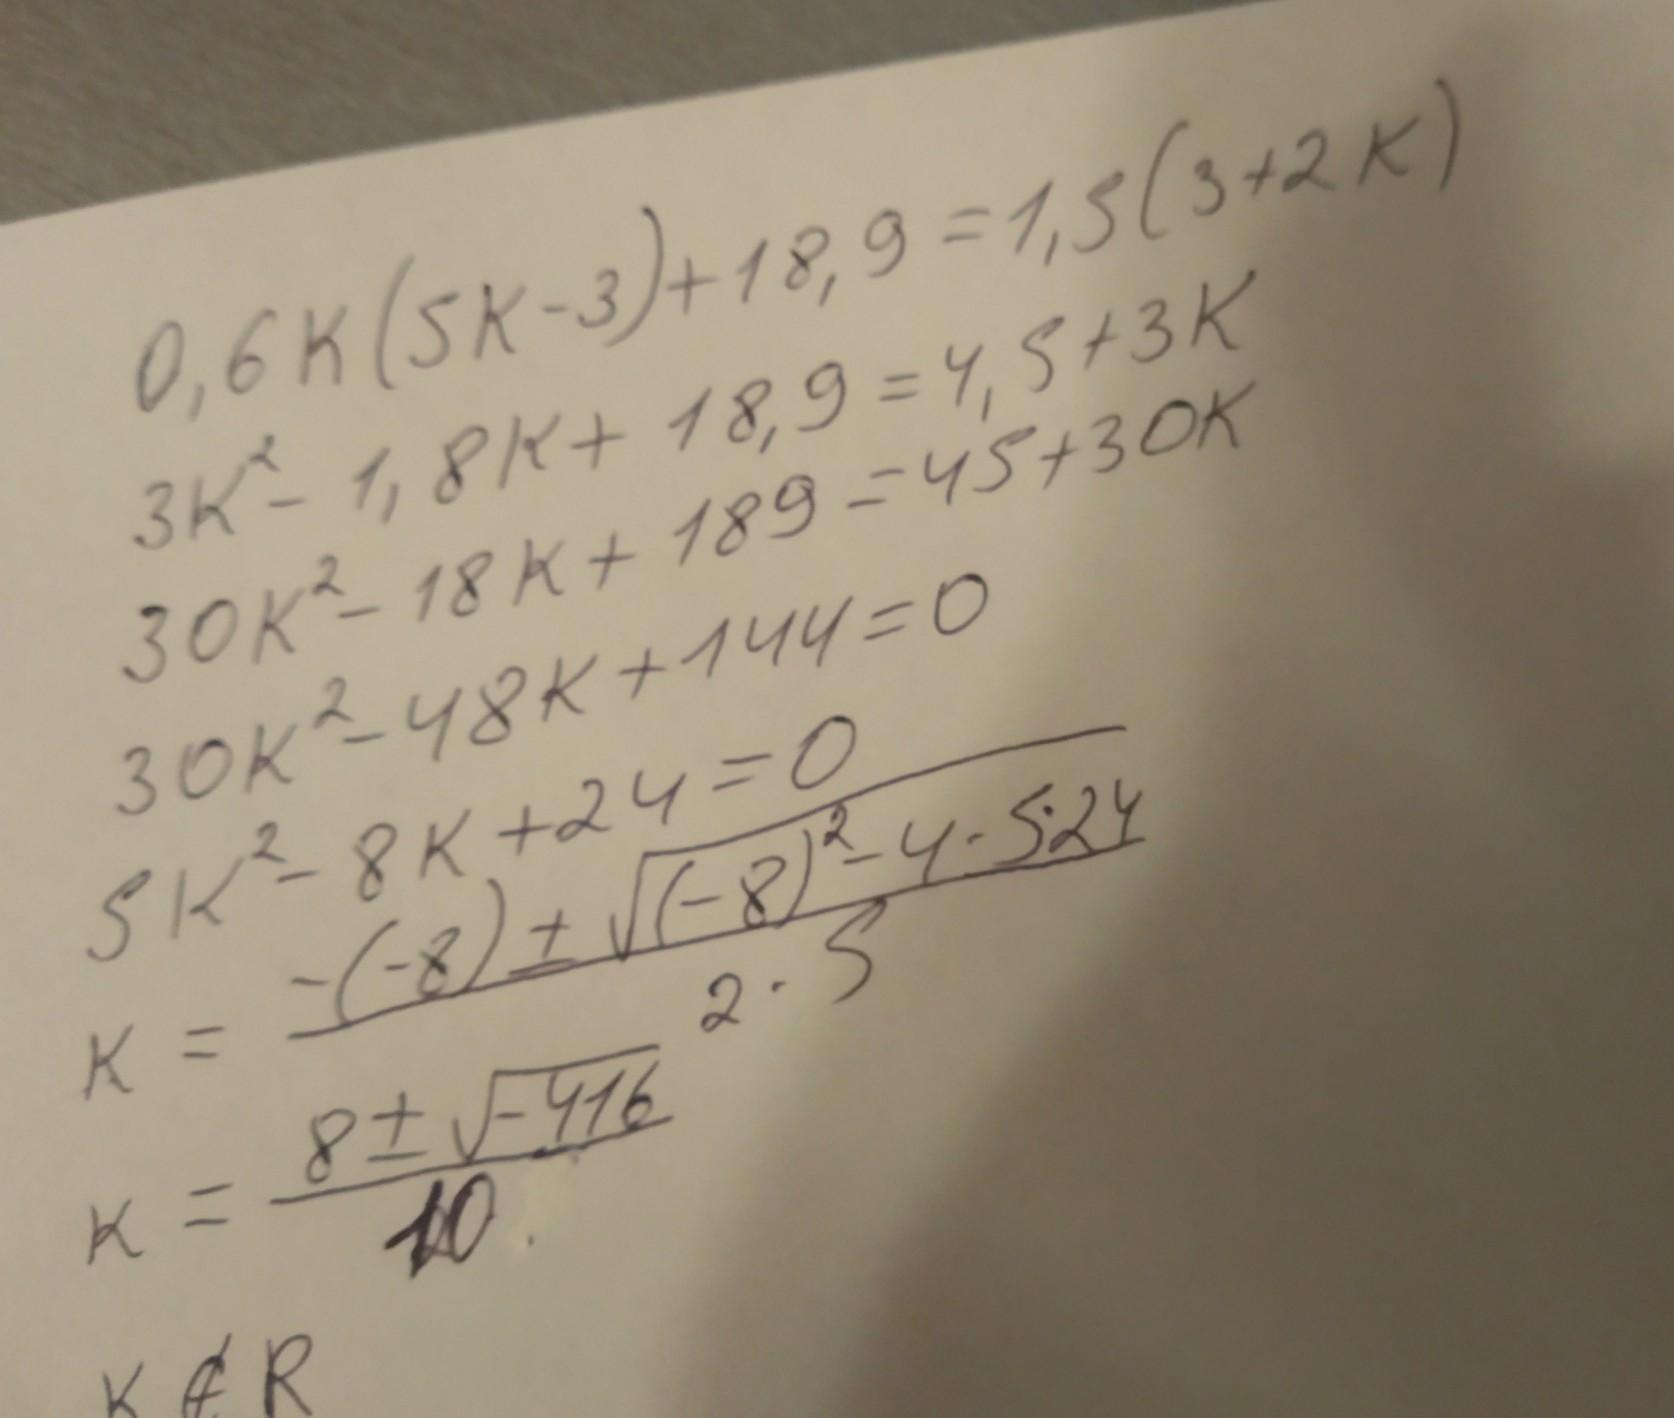 0,6K(5K-3)+18,9=1,5(3+2K)
3K²-1,8K+18,9=4,5+3K
30K²-18K+189=45+30K
30K²-48K+144=0
5K²-8K+24=0
K = (-(-8)±√((-8)²-4·5·24))/(2·5)
K = (8±√(-416))/10
K∉R